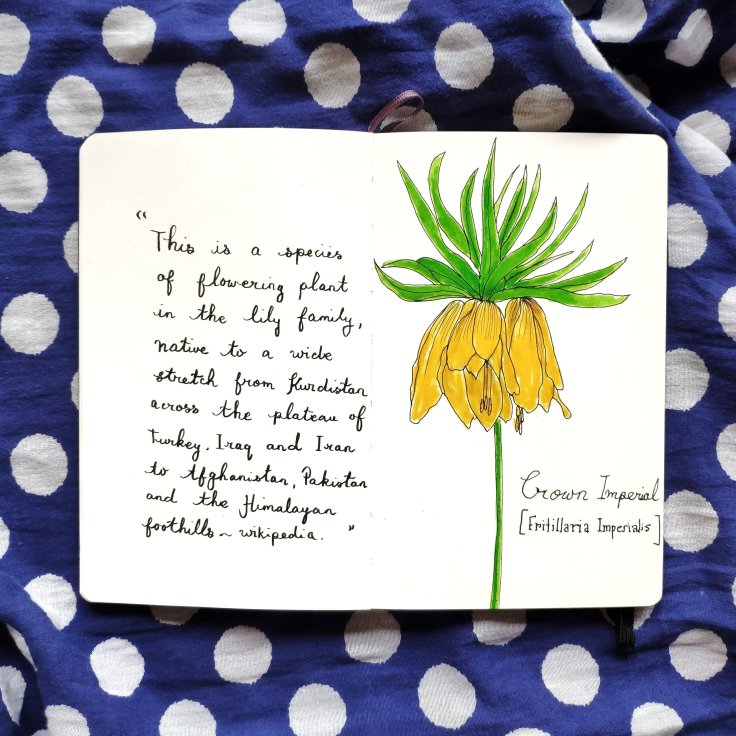 "This is a species
of flowering plant
in the lily family,
native to a wide
stretch from Kurdistan
across the plateau of
Turkey, Iraq and Iran
to Afghanistan, Pakistan
and the Himalayan
foothills ~ wikipedia. "
Crown Imperial
[Fritillaria Imperialis]